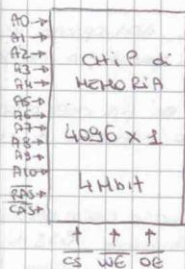 A0→
A1→
A2→
A3→
A4→
A5→
A6→
A7→
A8→
A9→
A10→
RAS→
CAS→
CHIP di
MEMORIA
4096 x 1
4Mbit
CS WE OE